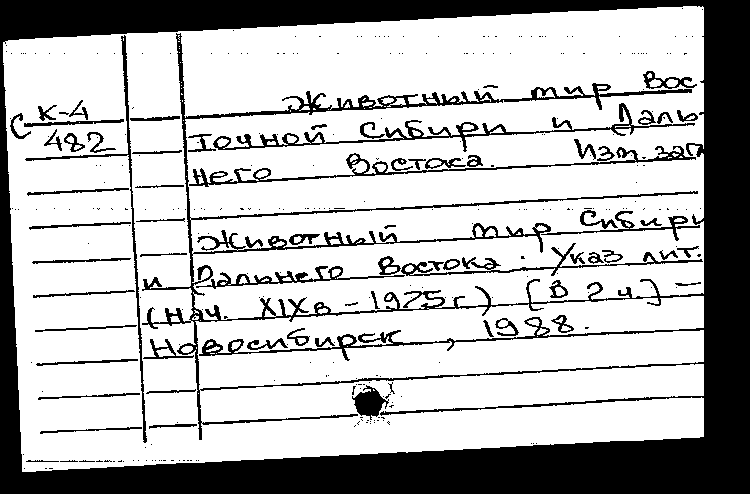 Животный мир Вос-
С К-4
482
точной Сибири и Даль-
него Востока. Изм. загл
Животный мир Сибири
и Дальнего Востока: Указ. лит.
(нач. XIX в - 1925 г.) [В 2 ч.] -
Новосибирск, 1988.